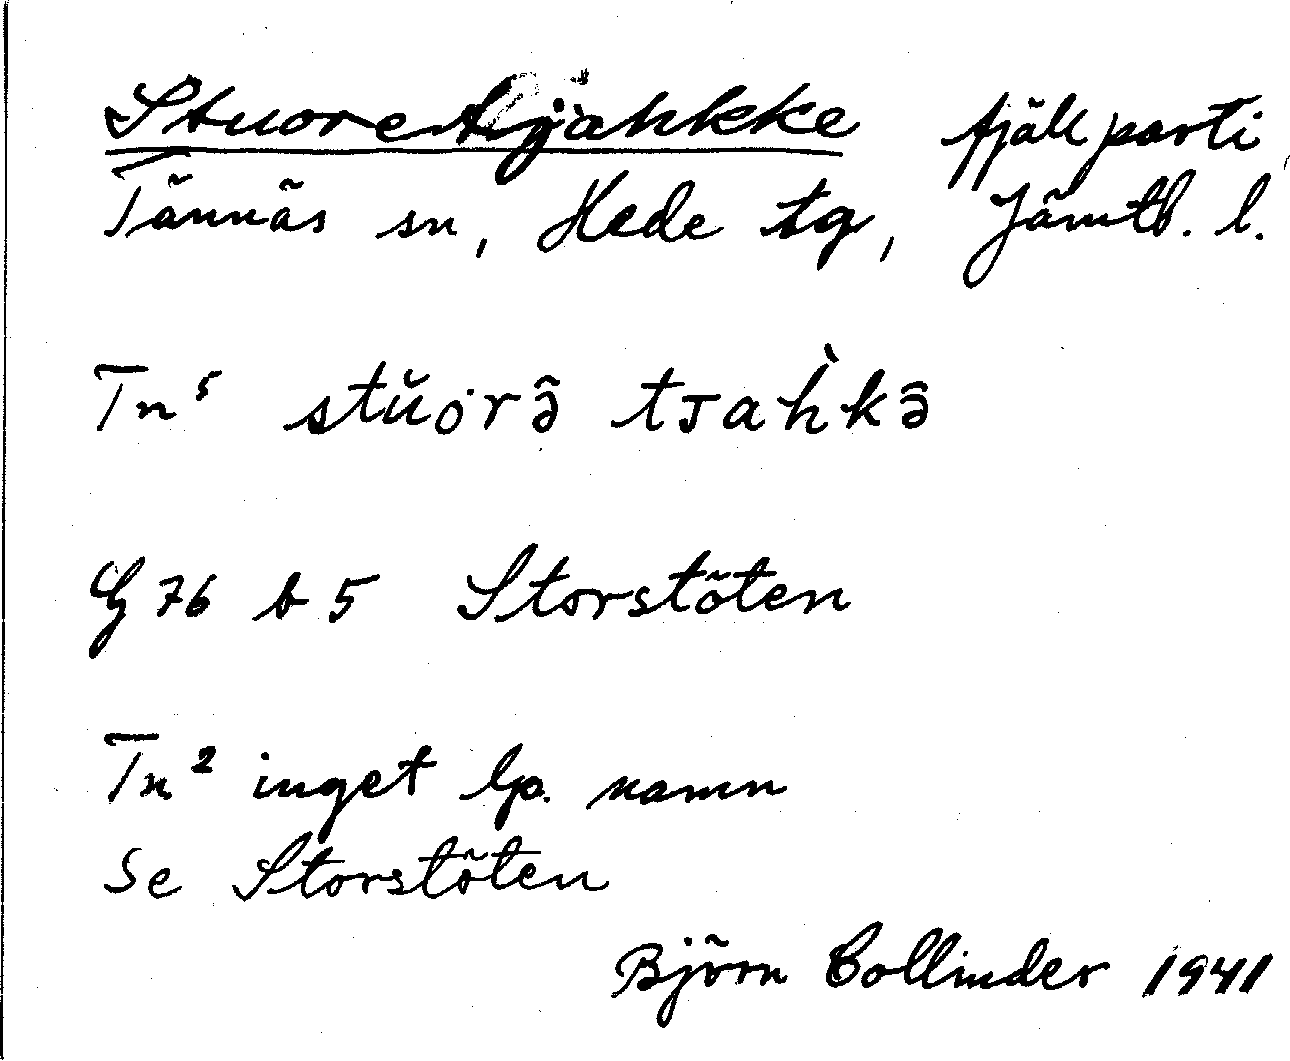 Stuoretjahkke fjällparti
Tännäs sn, Hede tg, Jämtl. l.
Tn⁵ stŭȯrə̂ tᴊah̀kə̂
G 76 b 5 Storstöten
Tn² inget lp. namn
Se Storstöten
Björn Collinder 1941